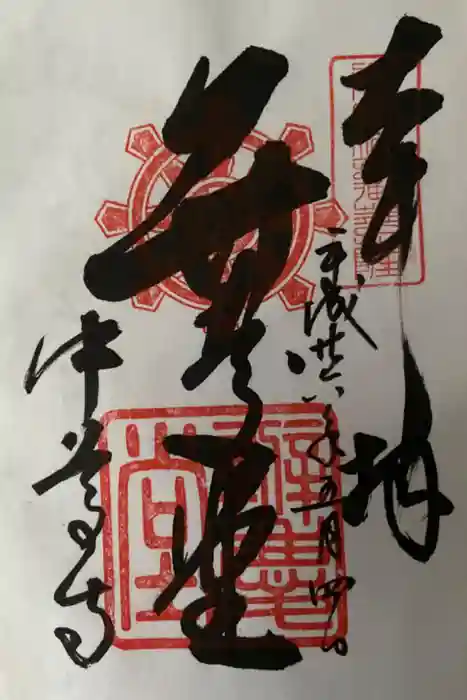 奉拝
平成廿六年五月四日
弁慶堂
中尊寺